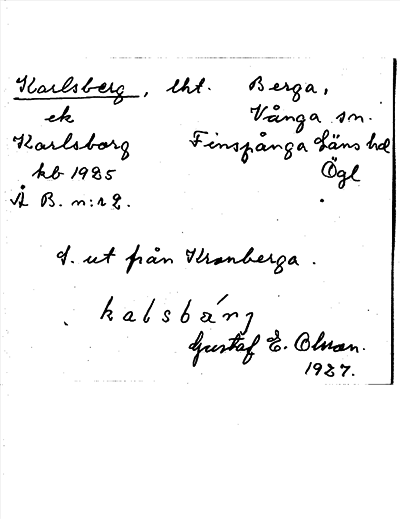 Karlsberg, lht. Berga,
ek Vånga sn.
Karlsborg Finspånga Läns hd
kb 1925 Ögl
Å B. n:r 2.
d. ut från Kronberga.
kalsbárj
Gustaf E. Olsson.
1927.